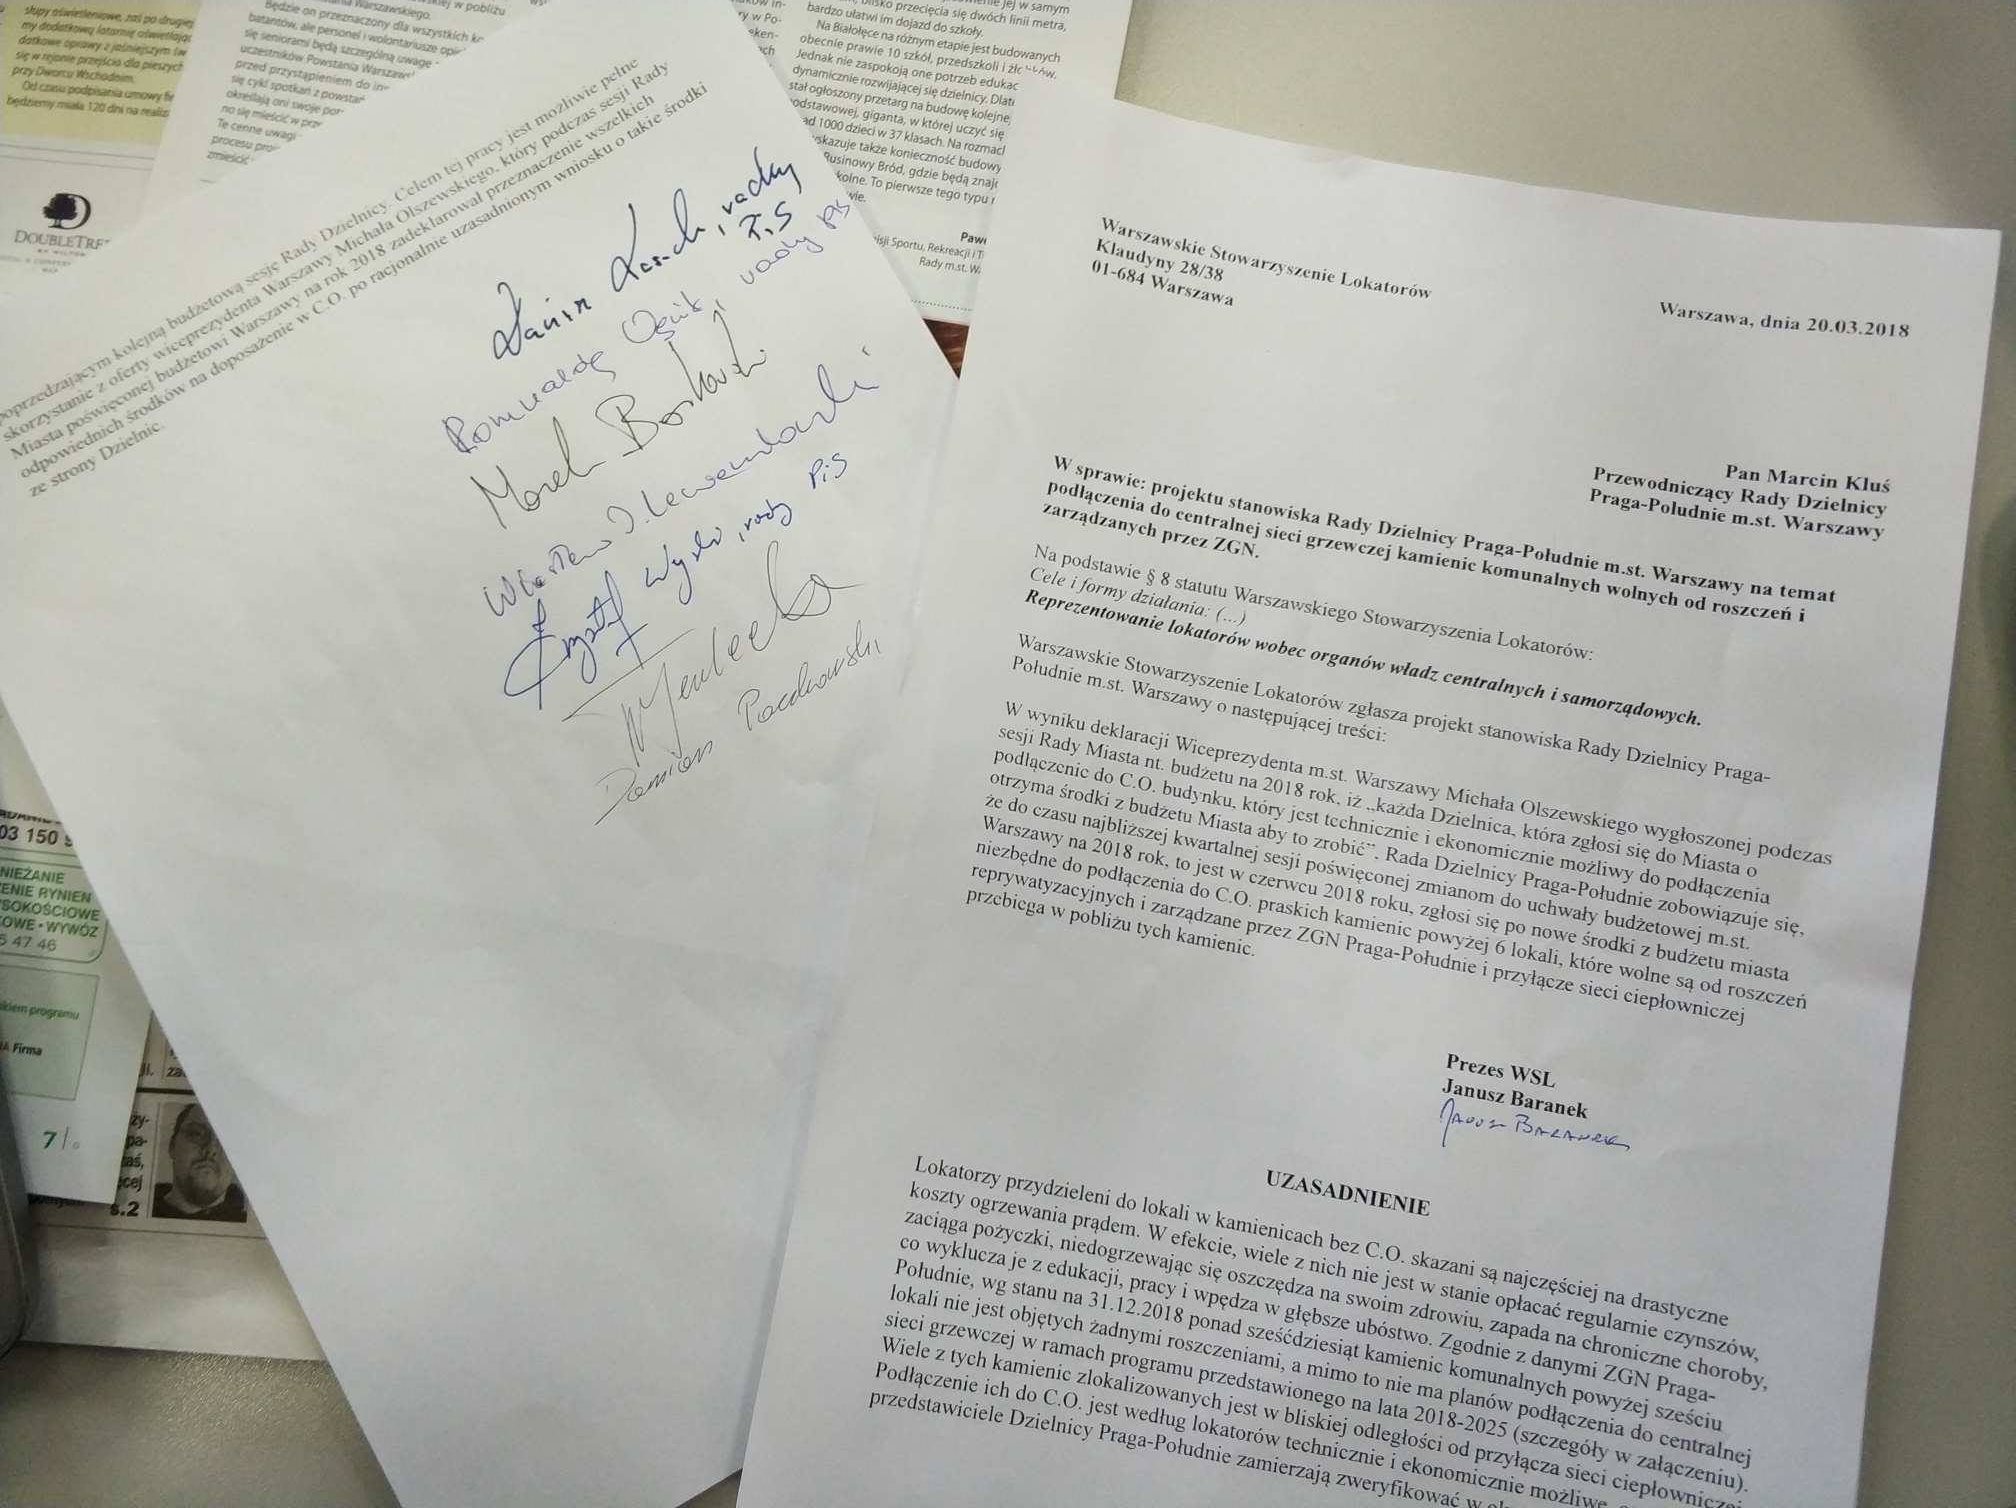 słupy oświetleniowe, zaś po drugiej
my dodatkową latarnię oświetlając
datkowe oprawy z jaśniejszym św
się w rejonie przejścia dla pieszych
przy Dworcu Wschodnim.
Od czasu podpisania umowy fi
będziemy miała 120 dni na realiz
DOUBLETREE
BY HILTON
Warszawskiego.
Będzie on przeznaczony dla wszystkich ko
batantów, ale personel i wolontariusze opie
się seniorami będą szczególną uwagę
uczestników Powstania Warszaw
przed przystąpieniem do in
się cykl spotkań z powstań
określają oni swoje po
no się mieścić w prz
Te cenne uwagi
procesu pro
zmieścić
blisko przecięcia się dwóch linii metra,
bardzo ułatwi im dojazd do szkoły.
Na Białołęce na różnym etapie jest budowanych
obecnie prawie 10 szkół, przedszkoli i żłobków.
Jednak nie zaspokoją one potrzeb edukac
dynamicznie rozwijającej się dzielnicy. Dlat
stał ogłoszony przetarg na budowę kolejnej
odstawowej, giganta, w której uczyć się
ad 1000 dzieci w 37 klasach. Na rozmach
skazuje także konieczność budowy
Rusinowy Bród, gdzie będą znajd
kolne. To pierwsze tego typu r
wie.
Pawe
isji Sportu, Rekreacji i T
Rady m.st. W
poprzedzającym kolejną budżetową sesję Rady Dzielnicy. Celem tej pracy jest możliwie pełne
skorzystanie z oferty wiceprezydenta Warszawy Michała Olszewskiego, który podczas sesji Rady
Miasta poświęconej budżetowi Warszawy na rok 2018 zadeklarował przeznaczenie wszelkich
odpowiednich środków na doposażenie w C.O. po racjonalnie uzasadnionym wniosku o takie środki
ze strony Dzielnic.
radny
PiS
radny PiS
Marek Borkowski
Wiesław J. Lewandowski
Krzysztof radny PiS
Damian
03 150
NIEŻANIE
ENIE RYNIEN
SOKOŚCIOWE
OWE • WYWÓZ
5 47 46
kiem programu
A Firma
7
s.2
Warszawskie Stowarzyszenie Lokatorów
Klaudyny 28/38
01-684 Warszawa
Warszawa, dnia 20.03.2018
Pan Marcin Kluś
Przewodniczący Rady Dzielnicy
Praga-Południe m.st. Warszawy
W sprawie: projektu stanowiska Rady Dzielnicy Praga-Południe m.st. Warszawy na temat
podłączenia do centralnej sieci grzewczej kamienic komunalnych wolnych od roszczeń i
zarządzanych przez ZGN.
Na podstawie § 8 statutu Warszawskiego Stowarzyszenia Lokatorów:
Cele i formy działania: (...)
Reprezentowanie lokatorów wobec organów władz centralnych i samorządowych.
Warszawskie Stowarzyszenie Lokatorów zgłasza projekt stanowiska Rady Dzielnicy Praga-
Południe m.st. Warszawy o następującej treści:
W wyniku deklaracji Wiceprezydenta m.st. Warszawy Michała Olszewskiego wygłoszonej podczas
sesji Rady Miasta nt. budżetu na 2018 rok, iż „każda Dzielnica, która zgłosi się do Miasta o
podłączenie do C.O. budynku, który jest technicznie i ekonomicznie możliwy do podłączenia
otrzyma środki z budżetu Miasta aby to zrobić”. Rada Dzielnicy Praga-Południe zobowiązuje się,
że do czasu najbliższej kwartalnej sesji poświęconej zmianom do uchwały budżetowej m.st.
Warszawy na 2018 rok, to jest w czerwcu 2018 roku, zgłosi się po nowe środki z budżetu miasta
niezbędne do podłączenia do C.O. praskich kamienic powyżej 6 lokali, które wolne są od roszczeń
reprywatyzacyjnych i zarządzane przez ZGN Praga-Południe i przyłącze sieci ciepłowniczej
przebiega w pobliżu tych kamienic.
Prezes WSL
Janusz Baranek
Janusz Baranek
UZASADNIENIE
Lokatorzy przydzieleni do lokali w kamienicach bez C.O. skazani są najczęściej na drastyczne
koszty ogrzewania prądem. W efekcie, wiele z nich nie jest w stanie opłacać regularnie czynszów,
zaciąga pożyczki, niedogrzewając się oszczędza na swoim zdrowiu, zapada na chroniczne choroby,
co wyklucza je z edukacji, pracy i wpędza w głębsze ubóstwo. Zgodnie z danymi ZGN Praga-
Południe, wg stanu na 31.12.2018 ponad sześćdziesiąt kamienic komunalnych powyżej sześciu
lokali nie jest objętych żadnymi roszczeniami, a mimo to nie ma planów podłączenia do centralnej
sieci grzewczej w ramach programu przedstawionego na lata 2018-2025 (szczegóły w załączeniu).
Wiele z tych kamienic zlokalizowanych jest w bliskiej odległości od przyłącza sieci ciepłowniczej
Podłączenie ich do C.O. jest według lokatorów technicznie i ekonomicznie możliwe
przedstawiciele Dzielnicy Praga-Południe zamierzają zweryfikować w